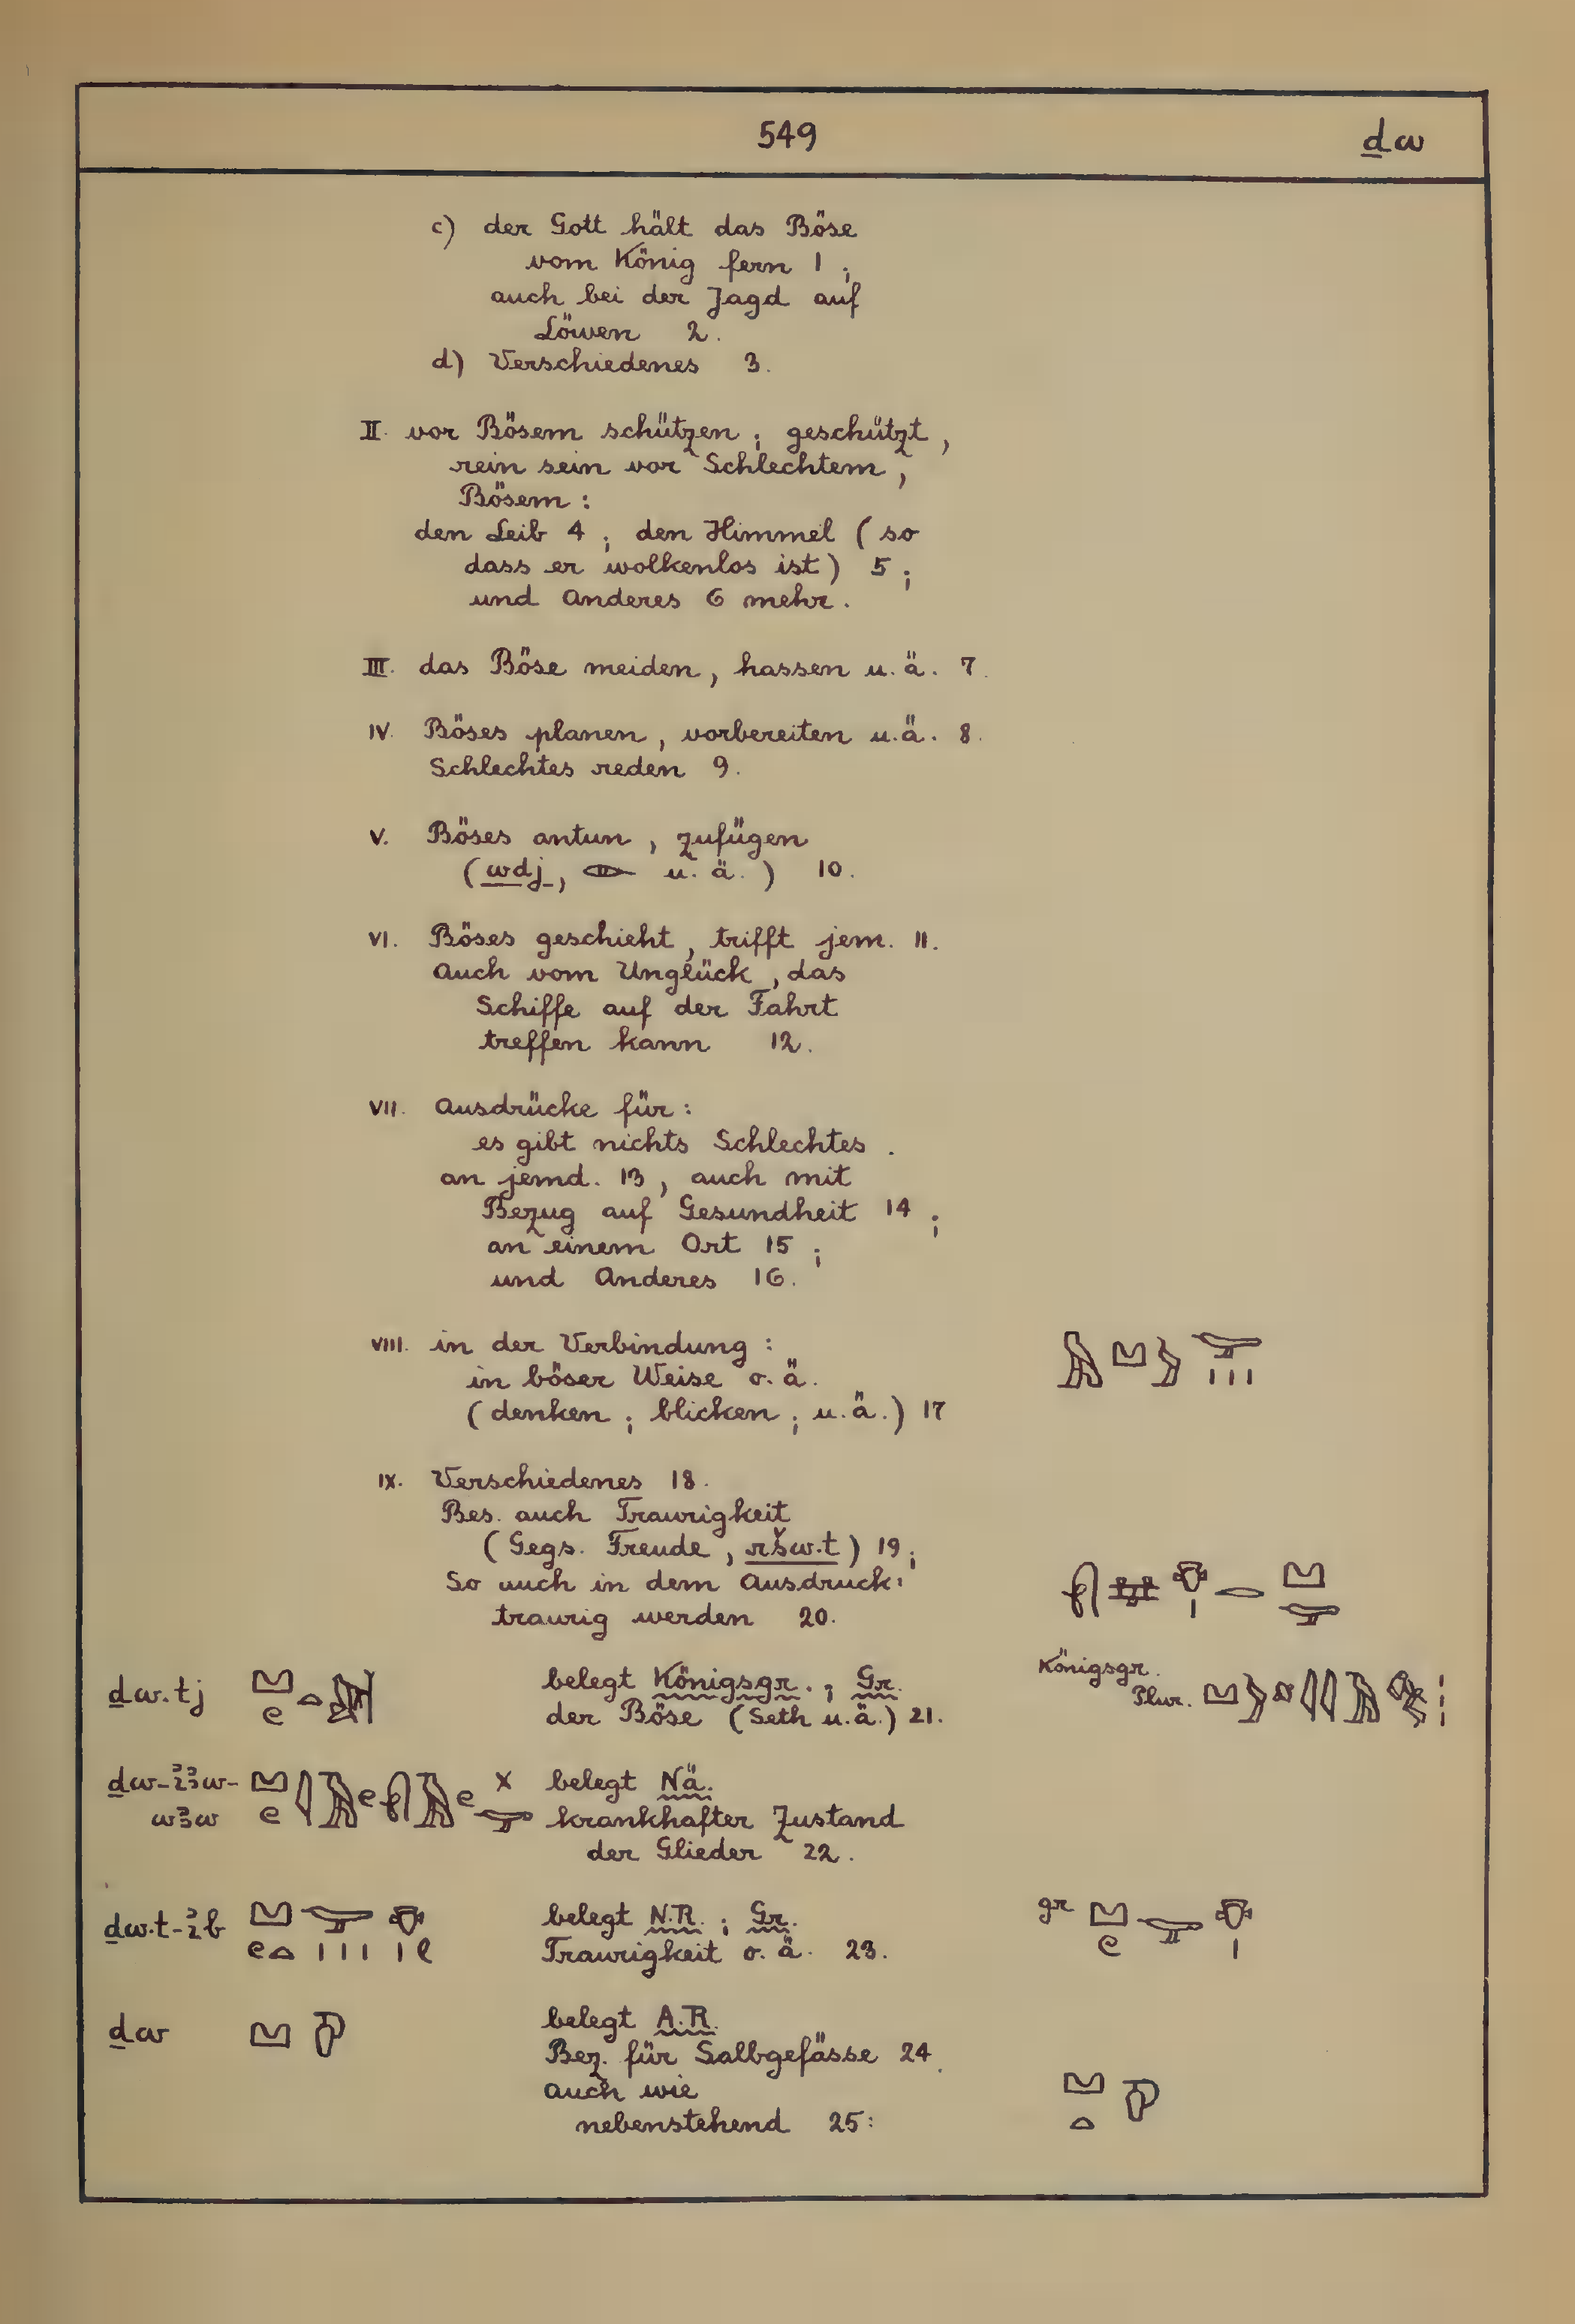 549 ḏw
c) der Gott hält das Böse
vom König fern 1 ;
auch bei der Jagd auf
Löwen 2.
d) Verschiedenes 3.
II. vor Bösem schützen ; geschützt,
rein sein vor Schlechtem,
Bösem :
den Leib 4 ; den Himmel ( so
dass er wolkenlos ist ) 5 ;
und Anderes 6 mehr.
III. das Böse meiden, hassen u. ä. 7.
IV. Böses planen, vorbereiten u. ä. 8.
Schlechtes reden 9.
V. Böses antun, zufügen
( wdj, u. ä. ) 10.
VI. Böses geschieht, trifft jem. 11.
Auch vom Unglück, das
Schiffe auf der Fahrt
treffen kann 12.
VII. Ausdrücke für :
es gibt nichts Schlechtes .
an jemd. 13, auch mit
Bezug auf Gesundheit 14 ;
an einem Ort 15 ;
und Anderes 16.
VIII. in der Verbindung :
in böser Weise o. ä.
( denken ; blicken ; u. ä. ) 17
IX. Verschiedenes 18.
Bes. auch Traurigkeit
( Gegs. Freude, ršw.t ) 19 ;
So auch in dem Ausdruck :
traurig werden 20.
ḏw.tj belegt Königsgr. ; Gr. Königsgr.
der Böse ( Seth u. ä. ) 21. Plur.
ḏw-ꞽꜣw- belegt Nä.
wꜣw krankhafter Zustand
der Glieder 22.
ḏw.t-ꞽb belegt N.R. ; Gr. gr
Traurigkeit o. ä. 23.
ḏw belegt A.R.
Bez. für Salbgefässe 24.
auch wie
nebenstehend 25 :